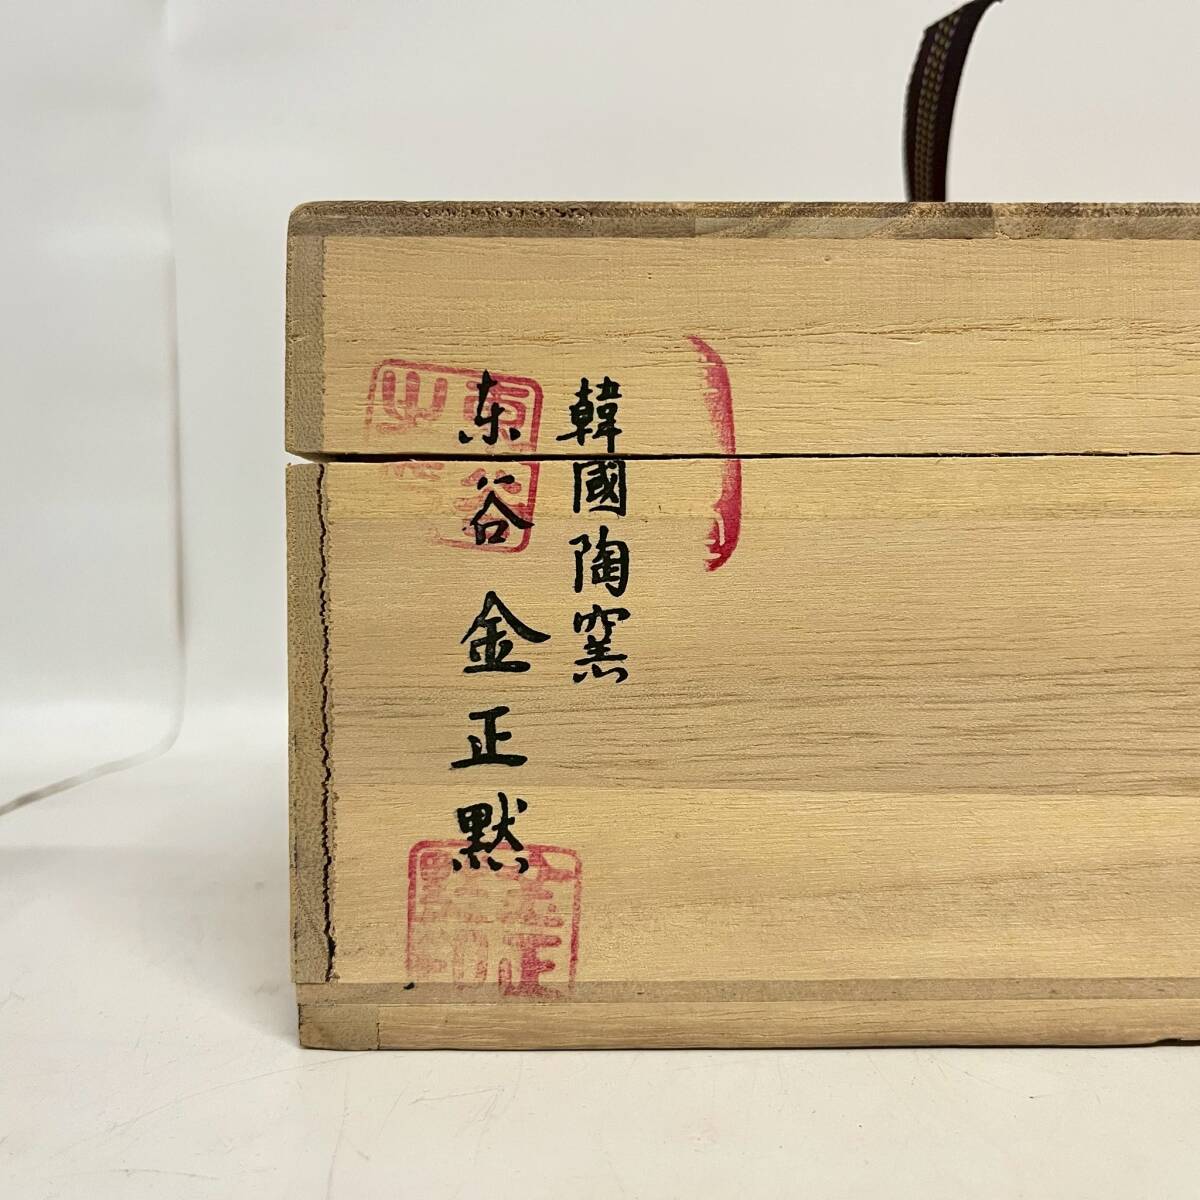 韓國陶窯
东谷 金正默